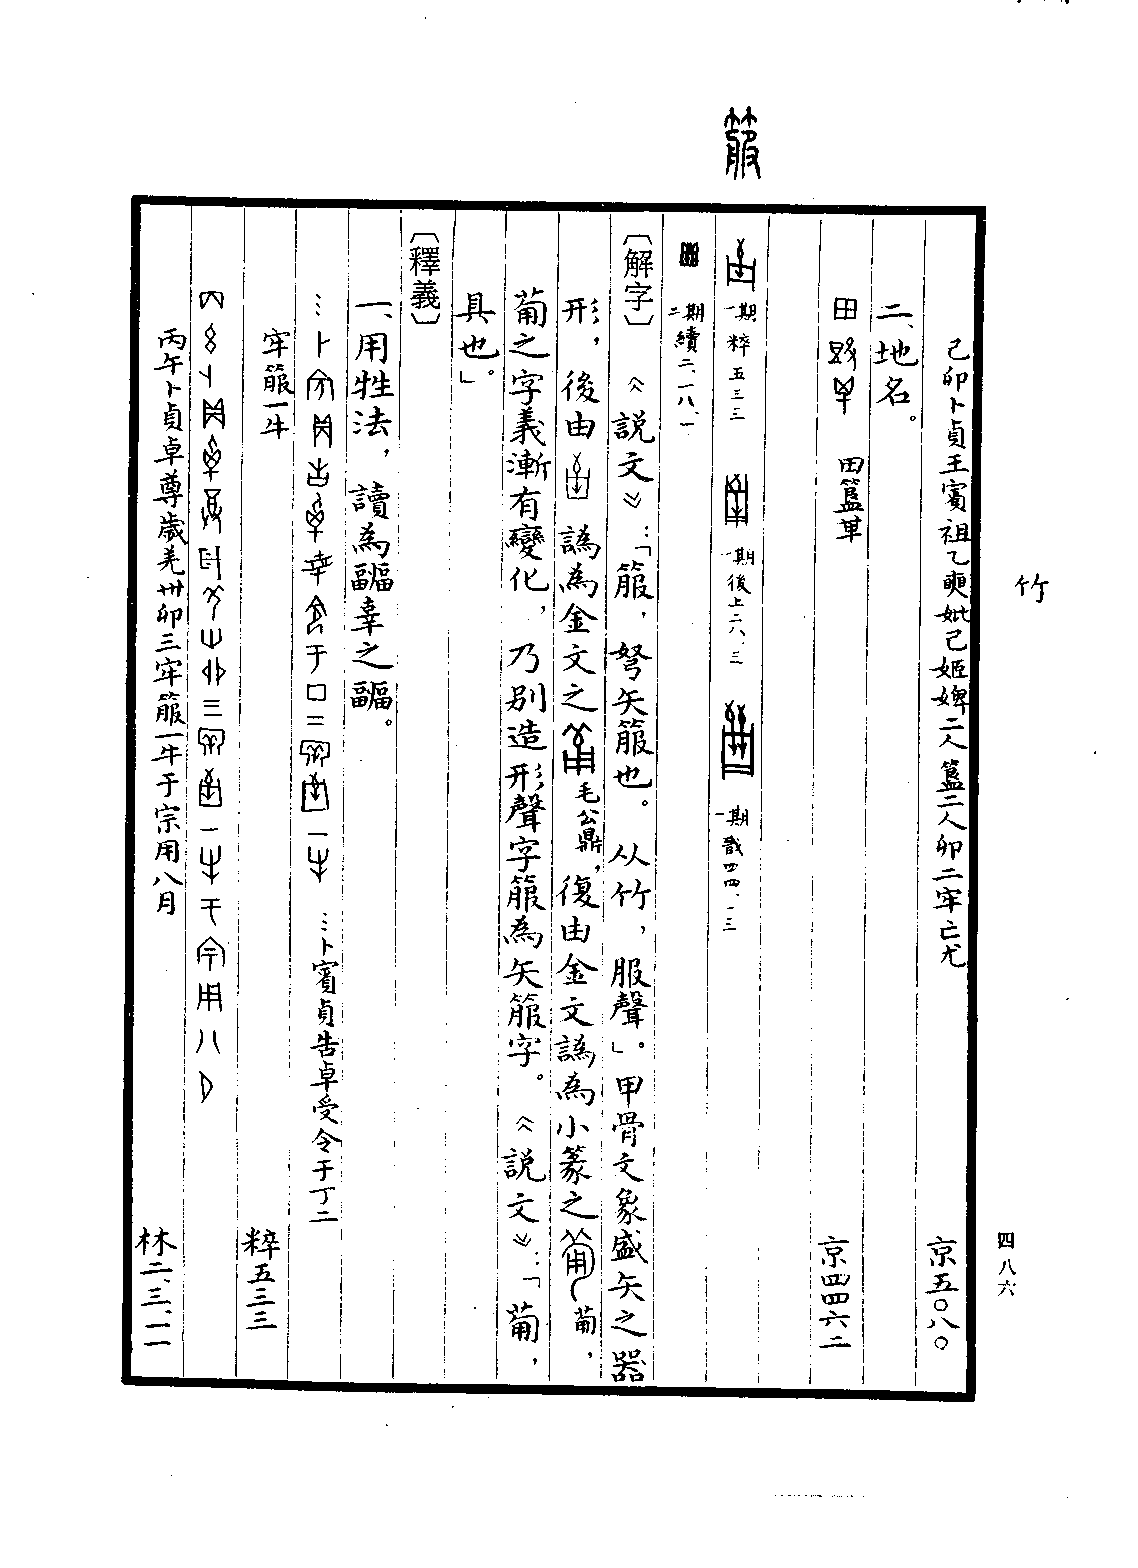 竹
四八六
己卯卜貞王賓祖乙奭妣己姬婢二人簋二人卯二牢亡尤 京五〇八〇
二、地名。
田簋𠦪 京四四六二
箙
一期粹五三三 一期後上二八、三 一期戩四四、一三
二期續二、一八、一
〔解字〕《說文》:「箙，弩矢箙也。从竹，服聲」。甲骨文象盛矢之器
形，後由 譌為金文之 毛公鼎，復由金文譌為小篆之 葡，
葡之字義漸有變化，乃別造形聲字箙為矢箙字。《說文》:「葡，
具也。」
〔釋義〕
一、用牲法，讀為副辜之副。
…卜賓貞告卓受令于丁二
牢箙一牛 粹五三三
丙午卜貞卓尊歲羌卅卯三牢箙一牛于宗用八月 林二、三、一一